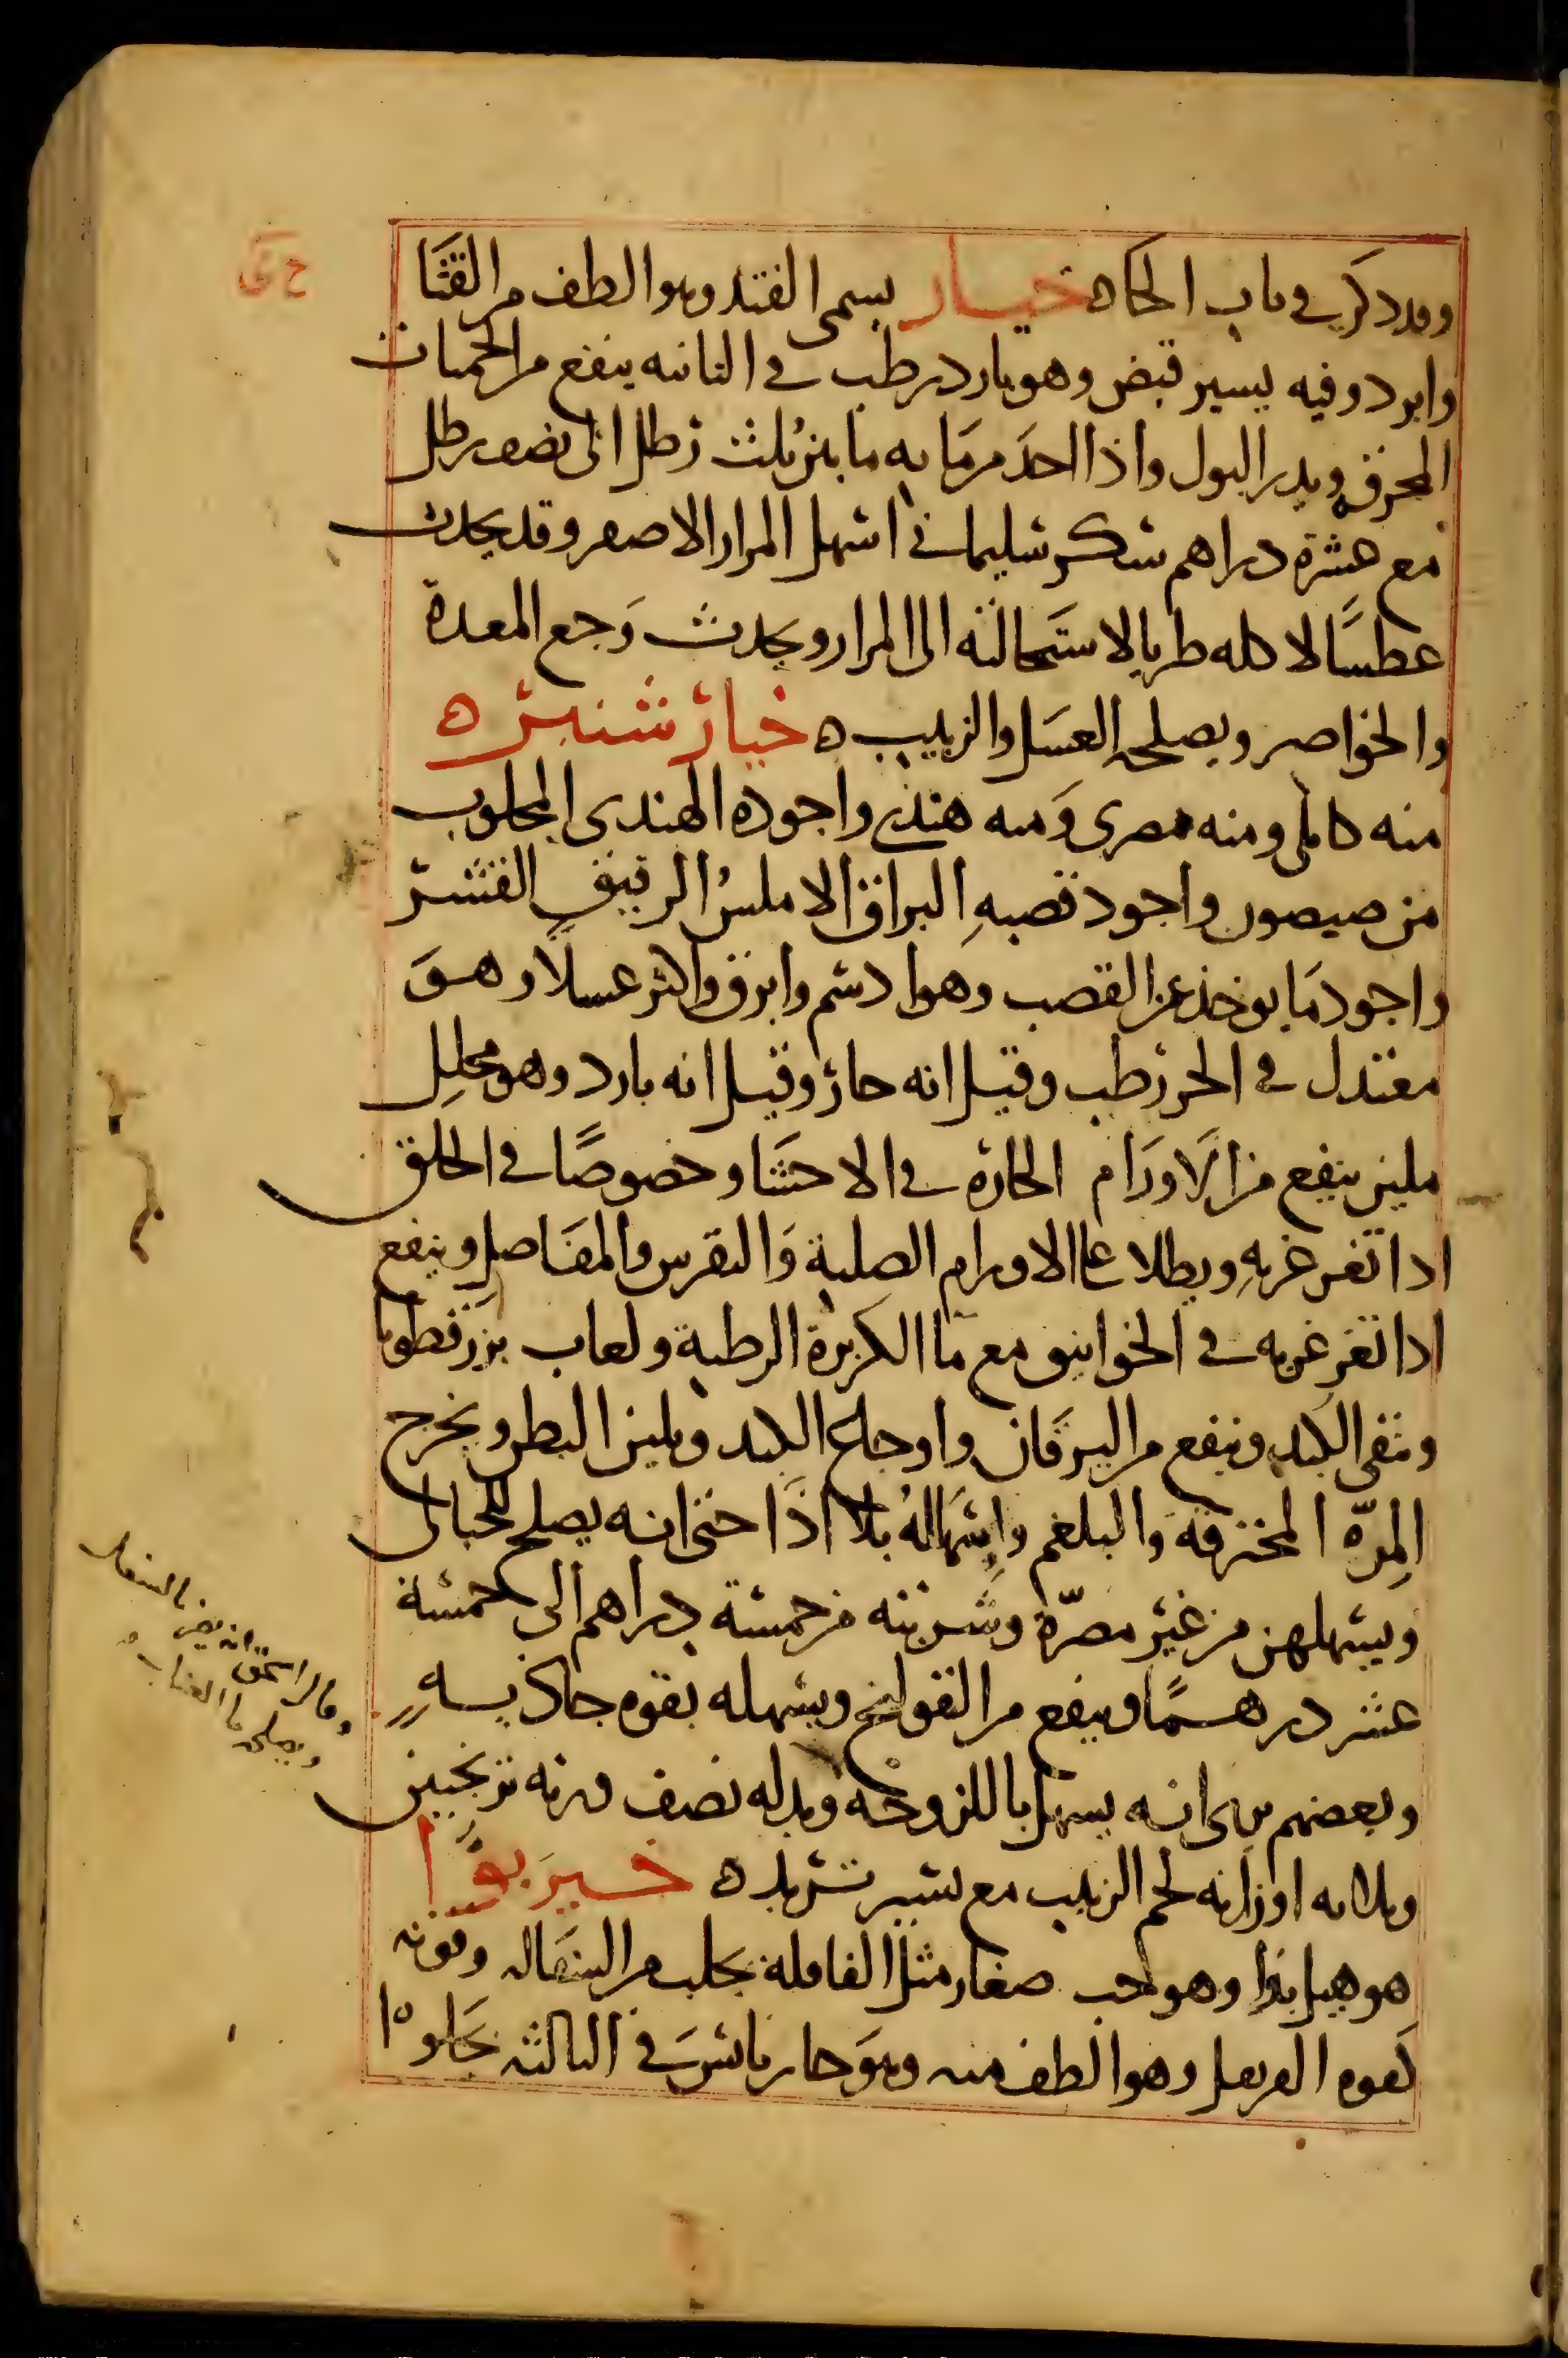 وقد ذكر في باب الحاء ه خيار يسمى القثد وهو الطف من القثا
وابرد وفيه يسير قبض وهو بارد رطب في الثانيه ينفع من الحميات
المحرقه ويدر البول واذا اخذ من مايه ما بين ثلث رطل الى نصف رطل
مع عشرة دراهم سكر سليماني اسهل المرار الاصفر وقد يحدث
عطسًا لاكله طريا لاستحالته الى المرار ويحدث وَجع المعدة
والخواصر ويصلحه العسَل والزبيب ه خيارشنبر ه
منه كابلى ومنه مصرى وَمنه هندى واجوده الهندى المجلوب
من صيمور واجود قصبهِ البراق الاملسُ الرقيق القشر
واجود مَا يوخذ عن القصب وهو ادسم وابرق واكثر عسلًا وهوَ
معتدل في الحر رطب وقيل انه حار وقيل انه بارد وهو محللِ
ملين ينفع من الاَورَام الحاره في الاحشَا وخصوصًا في الحلق
اذا تغرغر بهِ ويطلا على الاورام الصلبة وَالنقرس والمفَاصل وينفع
اذا تغرغر به في الخوانيق مع مَا الكزبرة الرطبة ولعاب بزرقطونا
وينقى الكبد وينفع من اليرقَان واوجاع الكبد ويلين البطن ويخرج
المِرّه المحترقه وَالبلغم واِسهَالهُ بلا اذَا حتى انه يصلح للحبالى
ويسهلهن من غير مضرّة وشربته من خمسة دراهم الى خمسة
عشر درهمًا وينفع من القولنج ويسهله بقوه جاذبيه
وبعضهم يرى انه يسهل باللزوجه وبدله نصف وزنه ترنجبين
وثلاثه اوزانه لحم الزبيب مع يسير تربد ه خيربوَّا
هو هيل بوا وهو حب صغار مثل القاقلة يجلب من السفاله وقوته
كقوه القرنفل وهو الطف منه وهوَ حار يابسَ في الثالثه يجَلوا
وقال اسحق انه يضر بالسفل
ويصلحه ما العناب ه